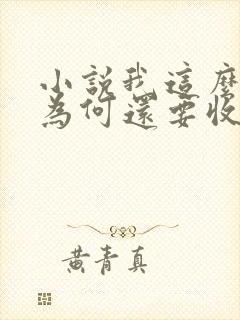 小說我這麼
為何還要收
黃青真